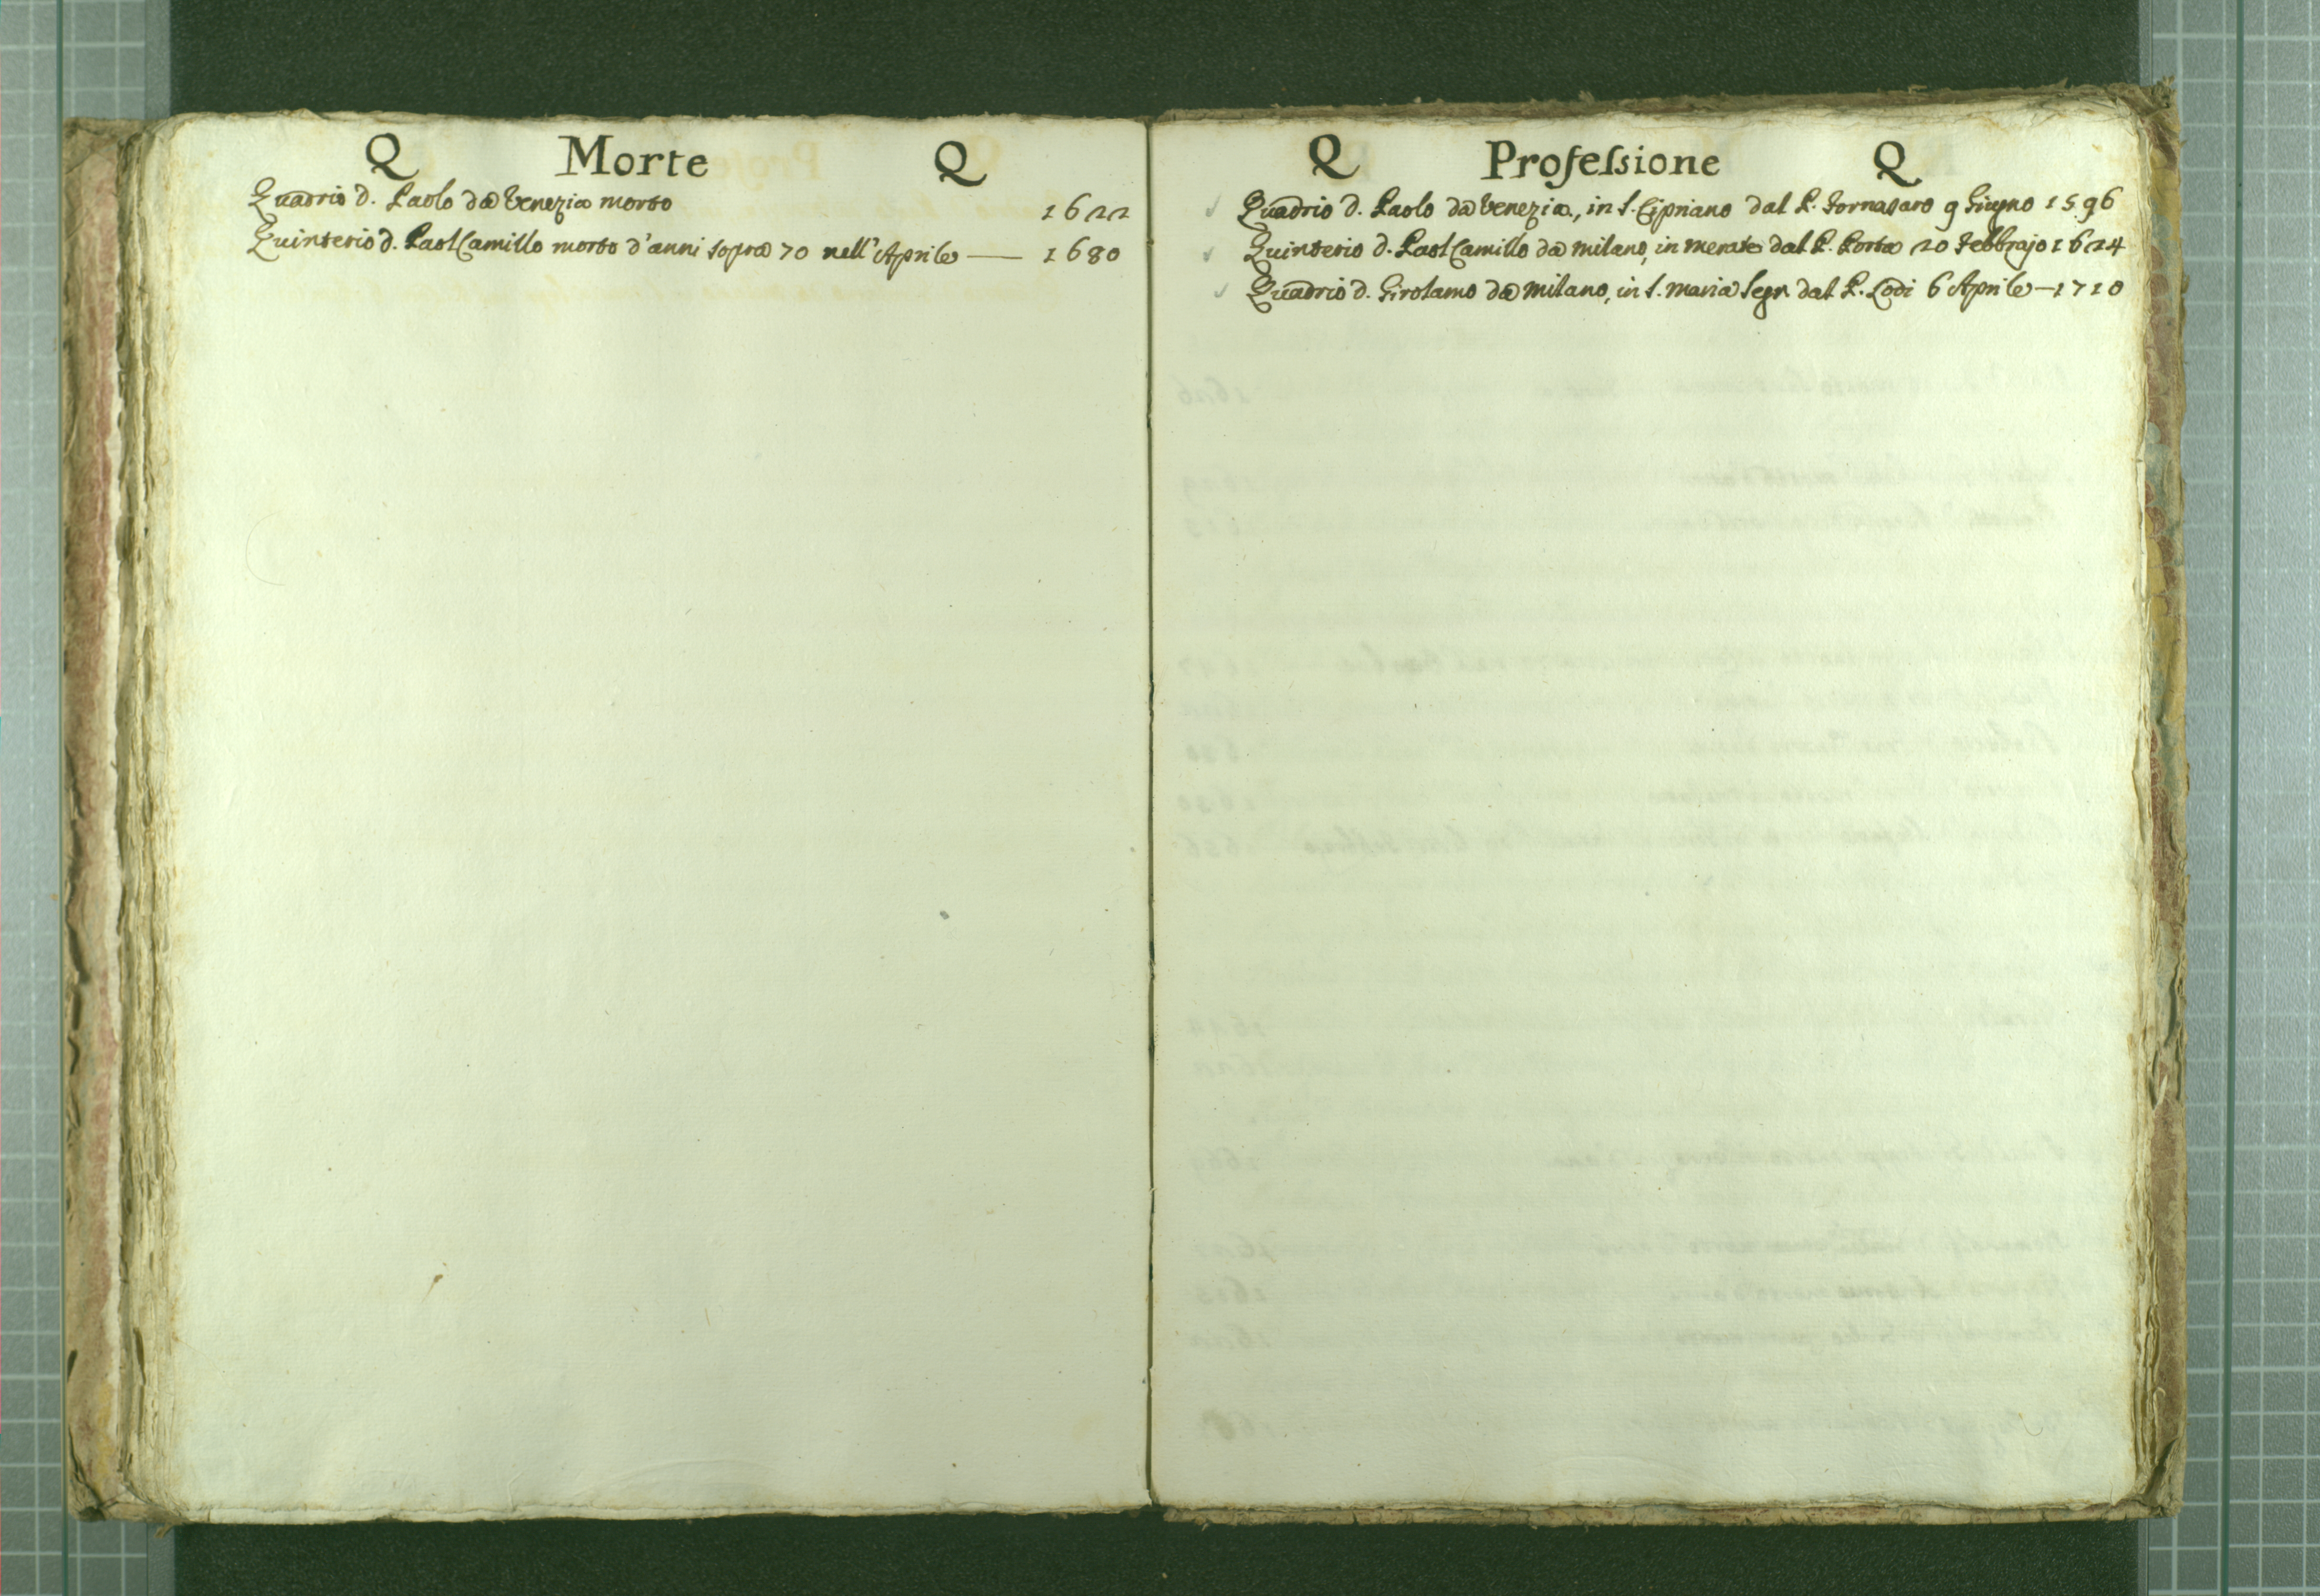 Q Morte Q
Quadrio d. Paolo da Venezia morto 1622
Quinterio d. Paol Camillo morto d'anni sopra 70 nell'Aprile — 1680
Q Professione Q
Quadrio d. Paolo da Venezia, in S. Cipriano dal P. Fornasaro 9 Giugno 1596
Quinterio d. Paol Camillo da Milano, in Merate dal P. Porta 20 Febbrajo 1624
Quadrio d. Girolamo da Milano, in S. Maria Segr. dal P. Lodi 6 Aprile — 1710